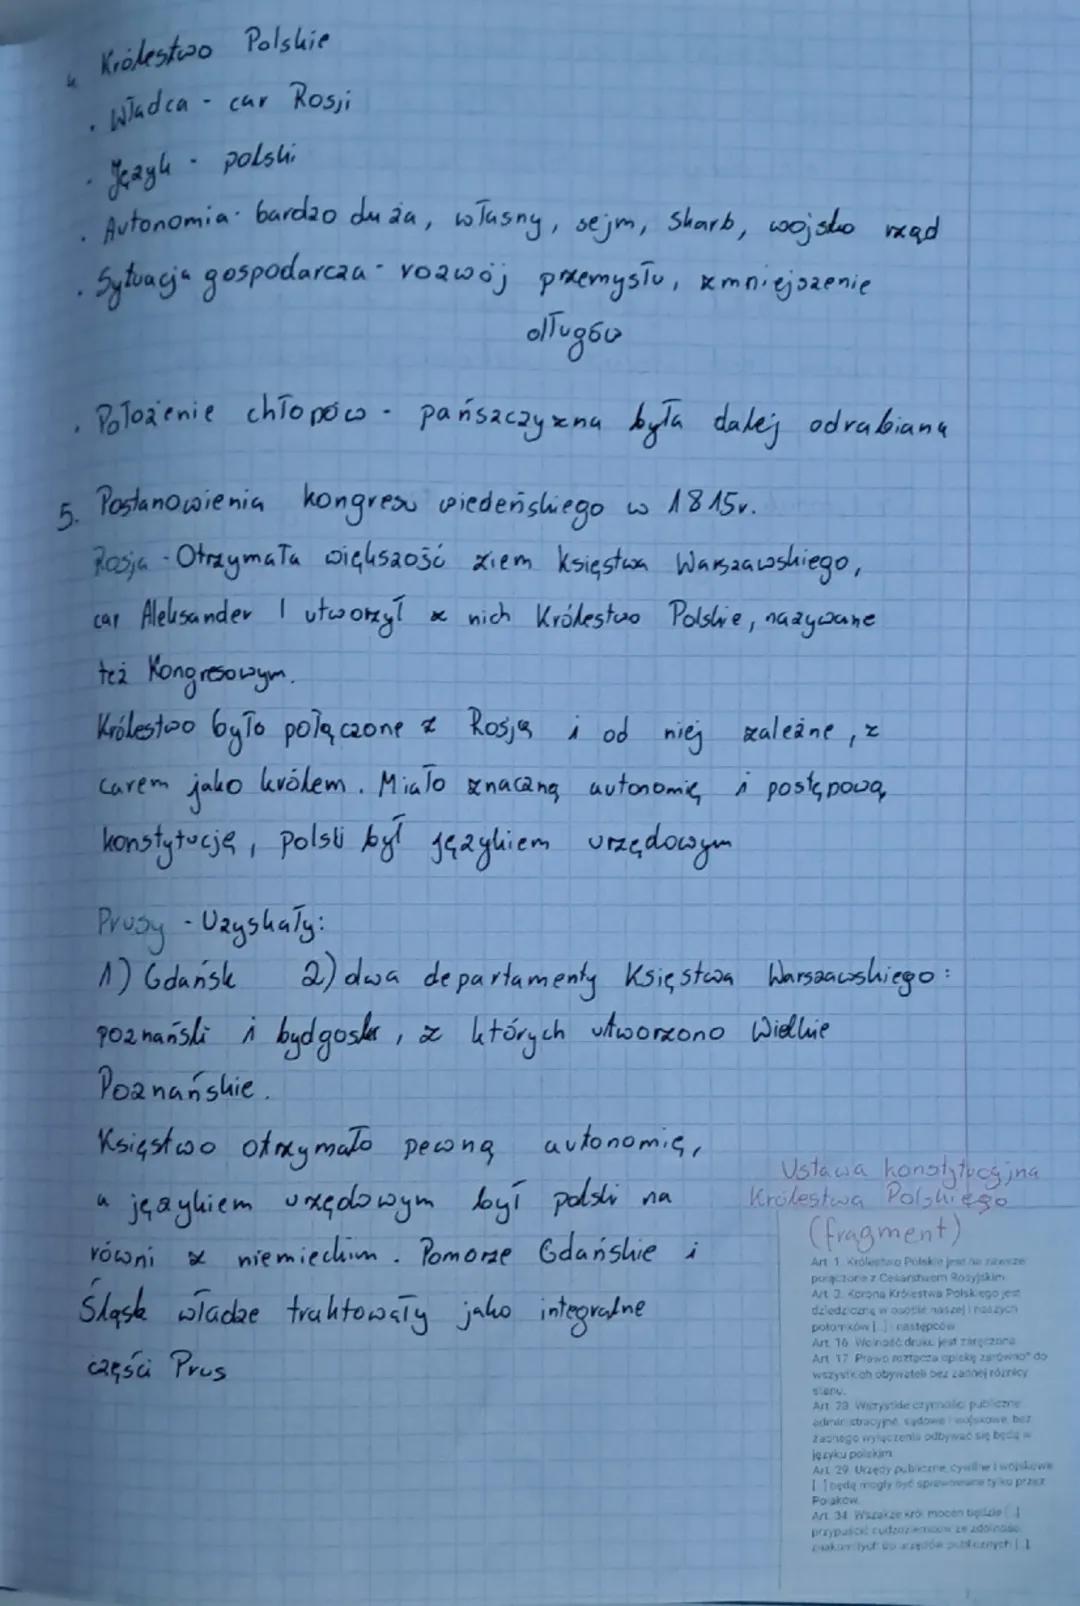 4. Królestwo Polskie
• Władca - car Rosji
• Język - polski
• Autonomia - bardzo duża, własny, sejm, Skarb, wojsko rząd
• Sytuacja gospodarcza - rozwój przemysłu, zmniejszenie
długów
• Położenie chłopów - pańszczyzna była dalej odrabiana
5. Postanowienia kongresu wiedeńskiego w 1815r.
Rosja - Otrzymała większość ziem Księstwa Warszawskiego,
car Aleksander I utworzył z nich Królestwo Polskie, nazywane
też Kongresowym.
Królestwo było połączone z Rosją i od niej zależne, z
carem jako królem. Miało znaczną autonomię i postępową
konstytucję, polski był językiem urzędowym
Prusy - Uzyskały:
1) Gdańsk 2) dwa departamenty Księstwa Warszawskiego:
poznański i bydgoski, z których utworzono Wielkie
Poznańskie.
Księstwo otrzymało pewną autonomię,
a językiem urzędowym był polski na
równi z niemieckim. Pomorze Gdańskie i
Śląsk władze traktowały jako integralne
części Prus
Ustawa konstytucyjna
Królestwa Polskiego
(fragment)
Art. 1. Królestwo Polskie jest na zawsze
połączone z Cesarstwem Rosyjskim
Art. 3. Korona Królestwa Polskiego jest
dziedziczną w osobie naszej i naszych
potomków [...] i następców
Art. 16. Wolność druku jest zaręczona
Art. 17. Prawo roztacza opiekę zarówno* do
wszystkich obywateli bez żadnej różnicy
stanu.
Art. 28. Wszystkie czynności publiczne
administracyjne, sądowe i wojskowe, bez
żadnego wyłączenia odbywać się będą w
języku polskim
Art. 29. Urzędy publiczne, cywilne i wojskowe
[...] będą mogły być sprawowane tylko przez
Polaków.
Art. 34. Wszakże król mocen będzie [...]
przypuścić cudzoziemców ze zdolności
znakomitych do urzędów publicznych [...].